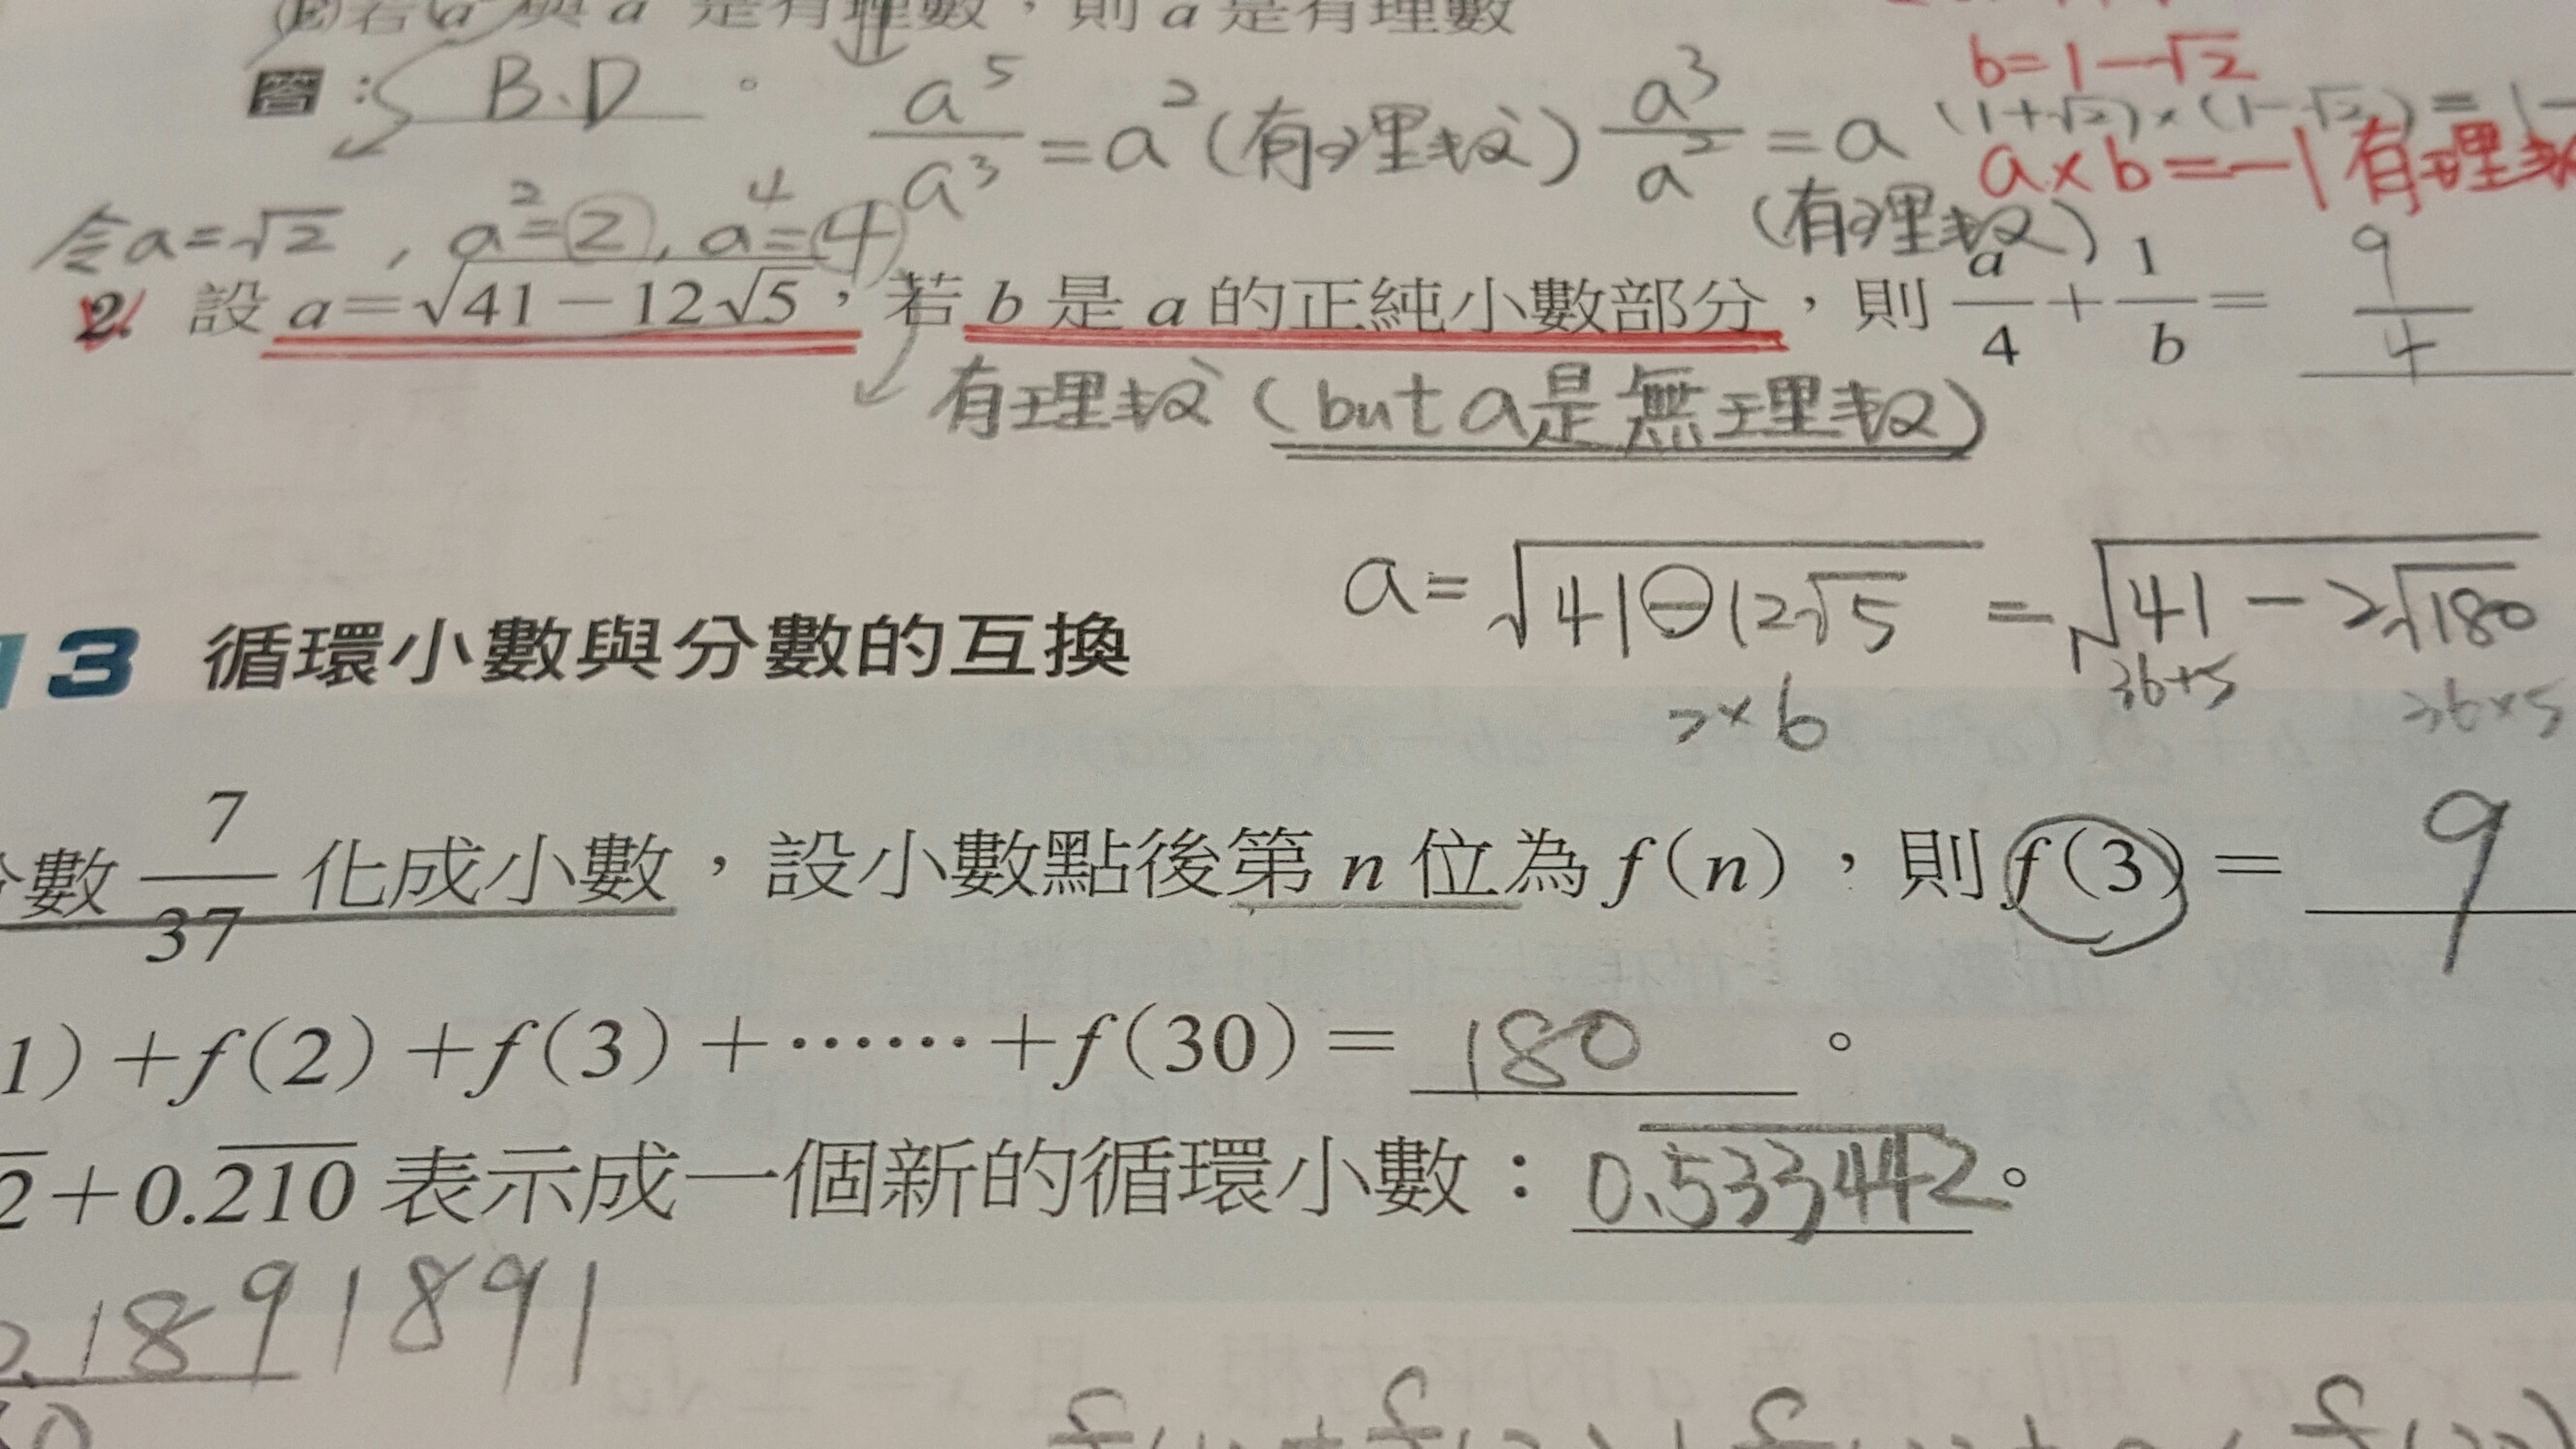 (E)若 a 與 a 是有理數，則 a 是有理數
答： B、D 。
a⁵/a³ = a² (有理數) a³/a² = a (有理數)
b=1-√2
(1+√2)×(1-√2)=1-
a×b=-1 有理數
令a=√2 , a²=2 , a⁴=4
2. 設 a=√(41-12√5)，若 b 是 a 的正純小數部分，則 a/4+1/b= 9/4
有理數 (but a是無理數)
a=√(41-12√5) = √(41-2√180)
2×6 36+5 36×5
3 循環小數與分數的互換
數 7/37 化成小數，設小數點後第 n 位為 f(n)，則 f(3)= 9
1)+f(2)+f(3)+……+f(30)= 180 。
2+0.210 表示成一個新的循環小數：0.533442。
0.1891891